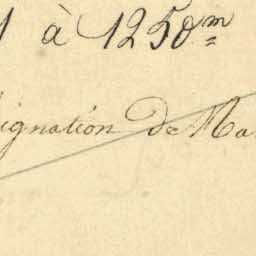 1 à 1250m
ignation de Ma